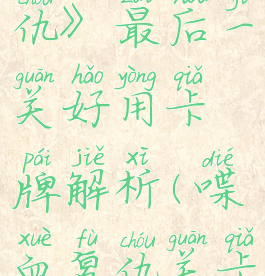 chóu zuì hòu yī
仇》最后一
guān hǎo yòng qiǎ
关好用卡
pái jiě xī dié
牌解析(喋
xuè fù chóu guān qiǎ
血复仇关卡